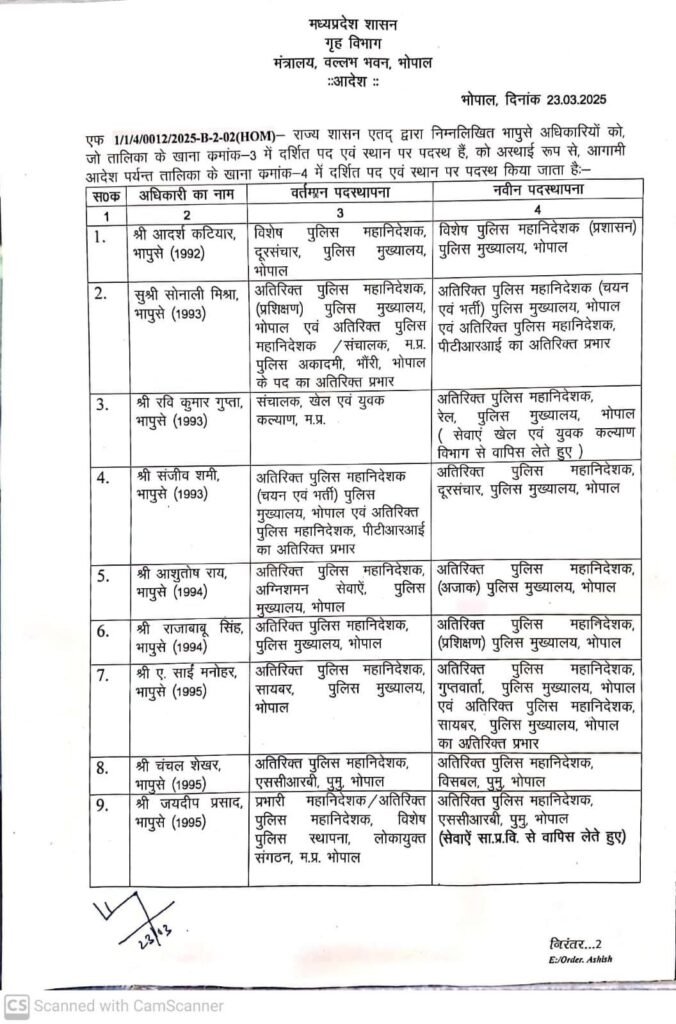 मध्यप्रदेश शासन
गृह विभाग
मंत्रालय, वल्लभ भवन, भोपाल
::आदेश ::
भोपाल, दिनांक 23.03.2025
एफ 1/1/4/0012/2025-B-2-02(HOM)– राज्य शासन एतद् द्वारा निम्नलिखित भापुसे अधिकारियों को,
जो तालिका के खाना कमांक-3 में दर्शित पद एवं स्थान पर पदस्थ हैं, को अस्थाई रूप से, आगामी
आदेश पर्यन्त तालिका के खाना कमांक-4 में दर्शित पद एवं स्थान पर पदस्थ किया जाता है:–
स०क अधिकारी का नाम वर्तमान पदस्थापना नवीन पदस्थापना
1 2 3 4
1. श्री आदर्श कटियार,
भापुसे (1992)
विशेष पुलिस महानिदेशक,
दूरसंचार, पुलिस मुख्यालय,
भोपाल
विशेष पुलिस महानिदेशक (प्रशासन)
पुलिस मुख्यालय, भोपाल
2. सुश्री सोनाली मिश्रा,
भापुसे (1993)
अतिरिक्त पुलिस महानिदेशक,
(प्रशिक्षण) पुलिस मुख्यालय,
भोपाल एवं अतिरिक्त पुलिस
महानिदेशक /संचालक, म.प्र.
पुलिस अकादमी, भौंरी, भोपाल
के पद का अतिरिक्त प्रभार
अतिरिक्त पुलिस महानिदेशक (चयन
एवं भर्ती) पुलिस मुख्यालय, भोपाल
एवं अतिरिक्त पुलिस महानिदेशक,
पीटीआरआई का अतिरिक्त प्रभार
3. श्री रवि कुमार गुप्ता,
भापुसे (1993)
संचालक, खेल एवं युवक
कल्याण, म.प्र.
अतिरिक्त पुलिस महानिदेशक,
रेल, पुलिस मुख्यालय, भोपाल
( सेवाएं खेल एवं युवक कल्याण
विभाग से वापिस लेते हुए )
4. श्री संजीव शमी,
भापुसे (1993)
अतिरिक्त पुलिस महानिदेशक
(चयन एवं भर्ती) पुलिस
मुख्यालय, भोपाल एवं अतिरिक्त
पुलिस महानिदेशक, पीटीआरआई
का अतिरिक्त प्रभार
अतिरिक्त पुलिस महानिदेशक,
दूरसंचार, पुलिस मुख्यालय, भोपाल
5. श्री आशुतोष राय,
भापुसे (1994)
अतिरिक्त पुलिस महानिदेशक,
अग्निशमन सेवाऐं, पुलिस
मुख्यालय, भोपाल
अतिरिक्त पुलिस महानिदेशक,
(अजाक) पुलिस मुख्यालय, भोपाल
6. श्री राजाबाबू सिंह,
भापुसे (1994)
अतिरिक्त पुलिस महानिदेशक,
पुलिस मुख्यालय, भोपाल
अतिरिक्त पुलिस महानिदेशक,
(प्रशिक्षण) पुलिस मुख्यालय, भोपाल
7. श्री ए. साई मनोहर,
भापुसे (1995)
अतिरिक्त पुलिस महानिदेशक,
सायबर, पुलिस मुख्यालय,
भोपाल
अतिरिक्त पुलिस महानिदेशक,
गुप्तवार्ता, पुलिस मुख्यालय, भोपाल
एवं अतिरिक्त पुलिस महानिदेशक,
सायबर, पुलिस मुख्यालय, भोपाल
का अतिरिक्त प्रभार
8. श्री चंचल शेखर,
भापुसे (1995)
अतिरिक्त पुलिस महानिदेशक,
एससीआरबी, पुमु, भोपाल
अतिरिक्त पुलिस महानिदेशक,
विसबल, पुमु, भोपाल
9. श्री जयदीप प्रसाद,
भापुसे (1995)
प्रभारी महानिदेशक/अतिरिक्त
पुलिस महानिदेशक, विशेष
पुलिस स्थापना, लोकायुक्त
संगठन, म.प्र. भोपाल
अतिरिक्त पुलिस महानिदेशक,
एससीआरबी, पुमु, भोपाल
(सेवाऐं सा.प्र.वि. से वापिस लेते हुए)
23/03
निरंतर...2
E:/Order. Ashish
CS Scanned with CamScanner